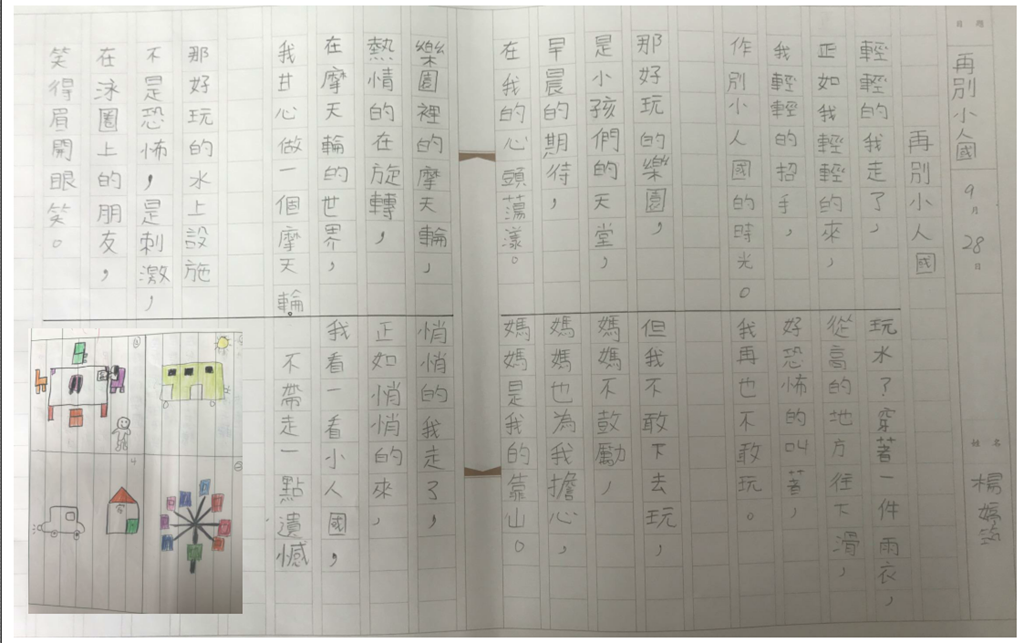 題目
再別小人國
9月28日
姓名
再別小人國
輕輕的我走了，
正如我輕輕的來，
我輕輕的招手，
作別小人國的時光。
那好玩的樂園，
是小孩們的天堂，
早晨的期待，
在我的心頭蕩漾。
樂園裡的摩天輪，
熱情的在旋轉，
在摩天輪的世界，
我甘心做一個摩天輪。
那好玩的水上設施
不是恐怖，是刺激，
在泳圈上的朋友，
笑得眉開眼笑。
玩水了穿著一件雨衣，
從高的地方往下滑，
好恐怖的叫著，
我再也不敢玩。
但我不敢下去玩，
媽媽不鼓勵，
媽媽也為我擔心，
媽媽是我的靠山。
悄悄的我走了，
正如悄悄的來，
我看一看小人國，
不帶走一點遺憾